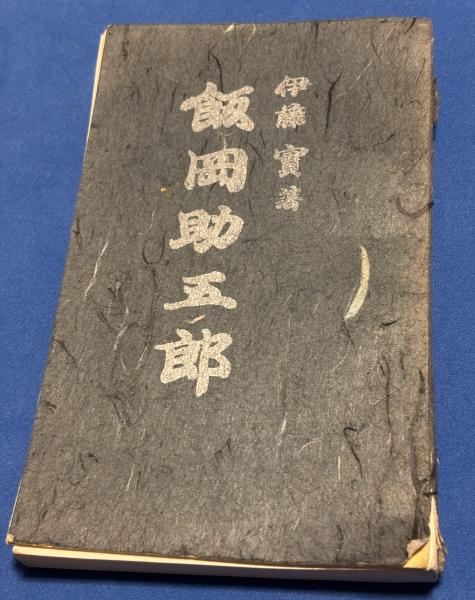 伊藤實著
飯岡助五郎